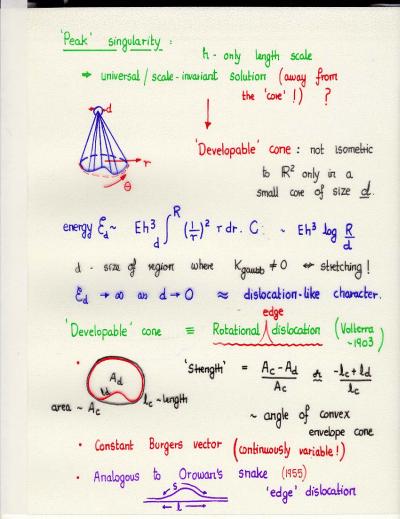 'Peak' singularity :
h - only length scale
⇒ universal / scale-invariant solution (away from
the 'core'!) ?
d
r
θ
'Developable' cone : not isometric
to R² only in a
small core of size d.
energy ℰ_d ~ Eh³ ∫_d^R (1/r)² r dr. C. ~ Eh³ log R/d
d - size of region where K_gauss ≠ 0 ⇔ stretching!
ℰ_d → ∞ as d → 0 ≈ dislocation-like character.
edge
'Developable' cone ≡ Rotational dislocation (Volterra
~1903)
• A_d l_d 'Strength' = (A_c - A_d)/A_c or (-l_c + l_d)/l_c
area ~ A_c l_c ~ length
~ angle of convex
envelope cone
• Constant Burgers vector (continuously variable!)
• Analogous to Orowan's snake (1955)
s
l
'edge' dislocation